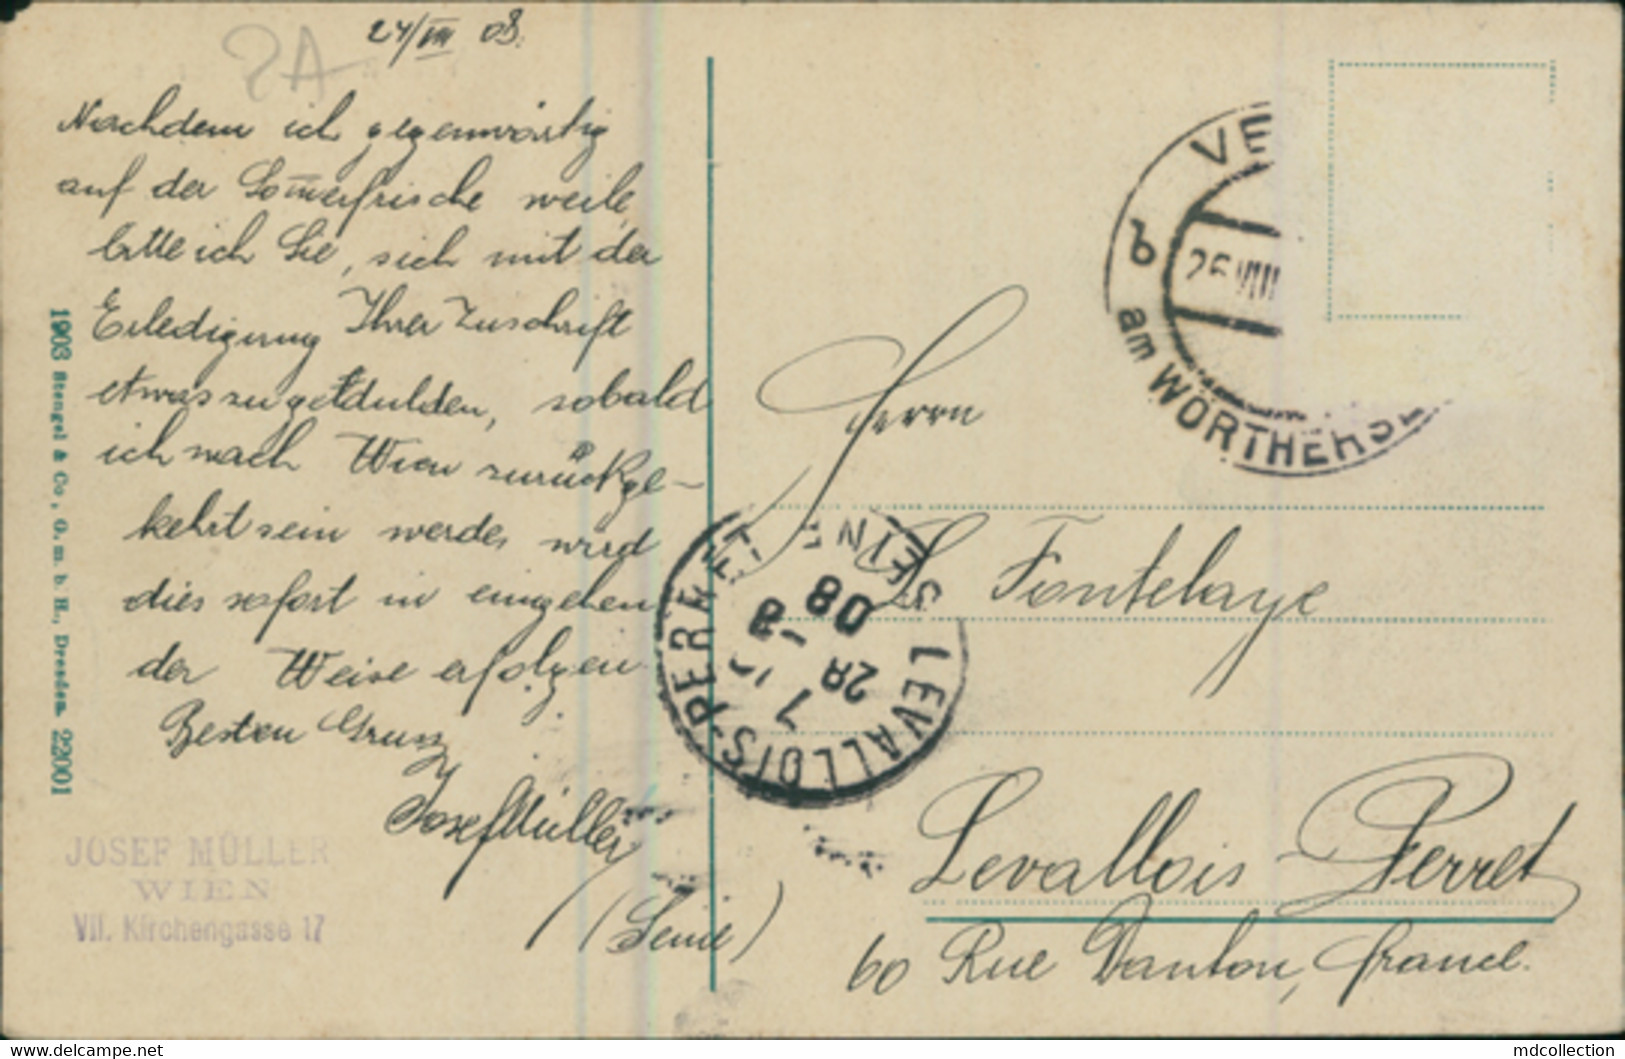 2A
24/VIII 08.
Nachdem ich gegenwärtig
auf der Som̅erfrische weile,
bitte ich Sie, sich mit der
Erledigung Ihrer Zuschrift
etwas zu gedulden, sobald
ich nach Wien zurückge-
kehrt sein werde, wird
dies sofort in eingehen
der Weise erfolgen
Besten Gruss
Josef Müller
JOSEF MÜLLER
WIEN
VII. Kirchengasse 17
1903 Stengel & Co., G. m. b. H., Dresden. 22001
VE
b
26 VIII
am WÖRTHERSE
LEVALLOIS-PERRET
SEINE
7
28 -8
08
Herrn
L. Fontelaye
Levallois-Perret
(Seine)
60 Rue Danton, France.
delcampe.net
mdcollection